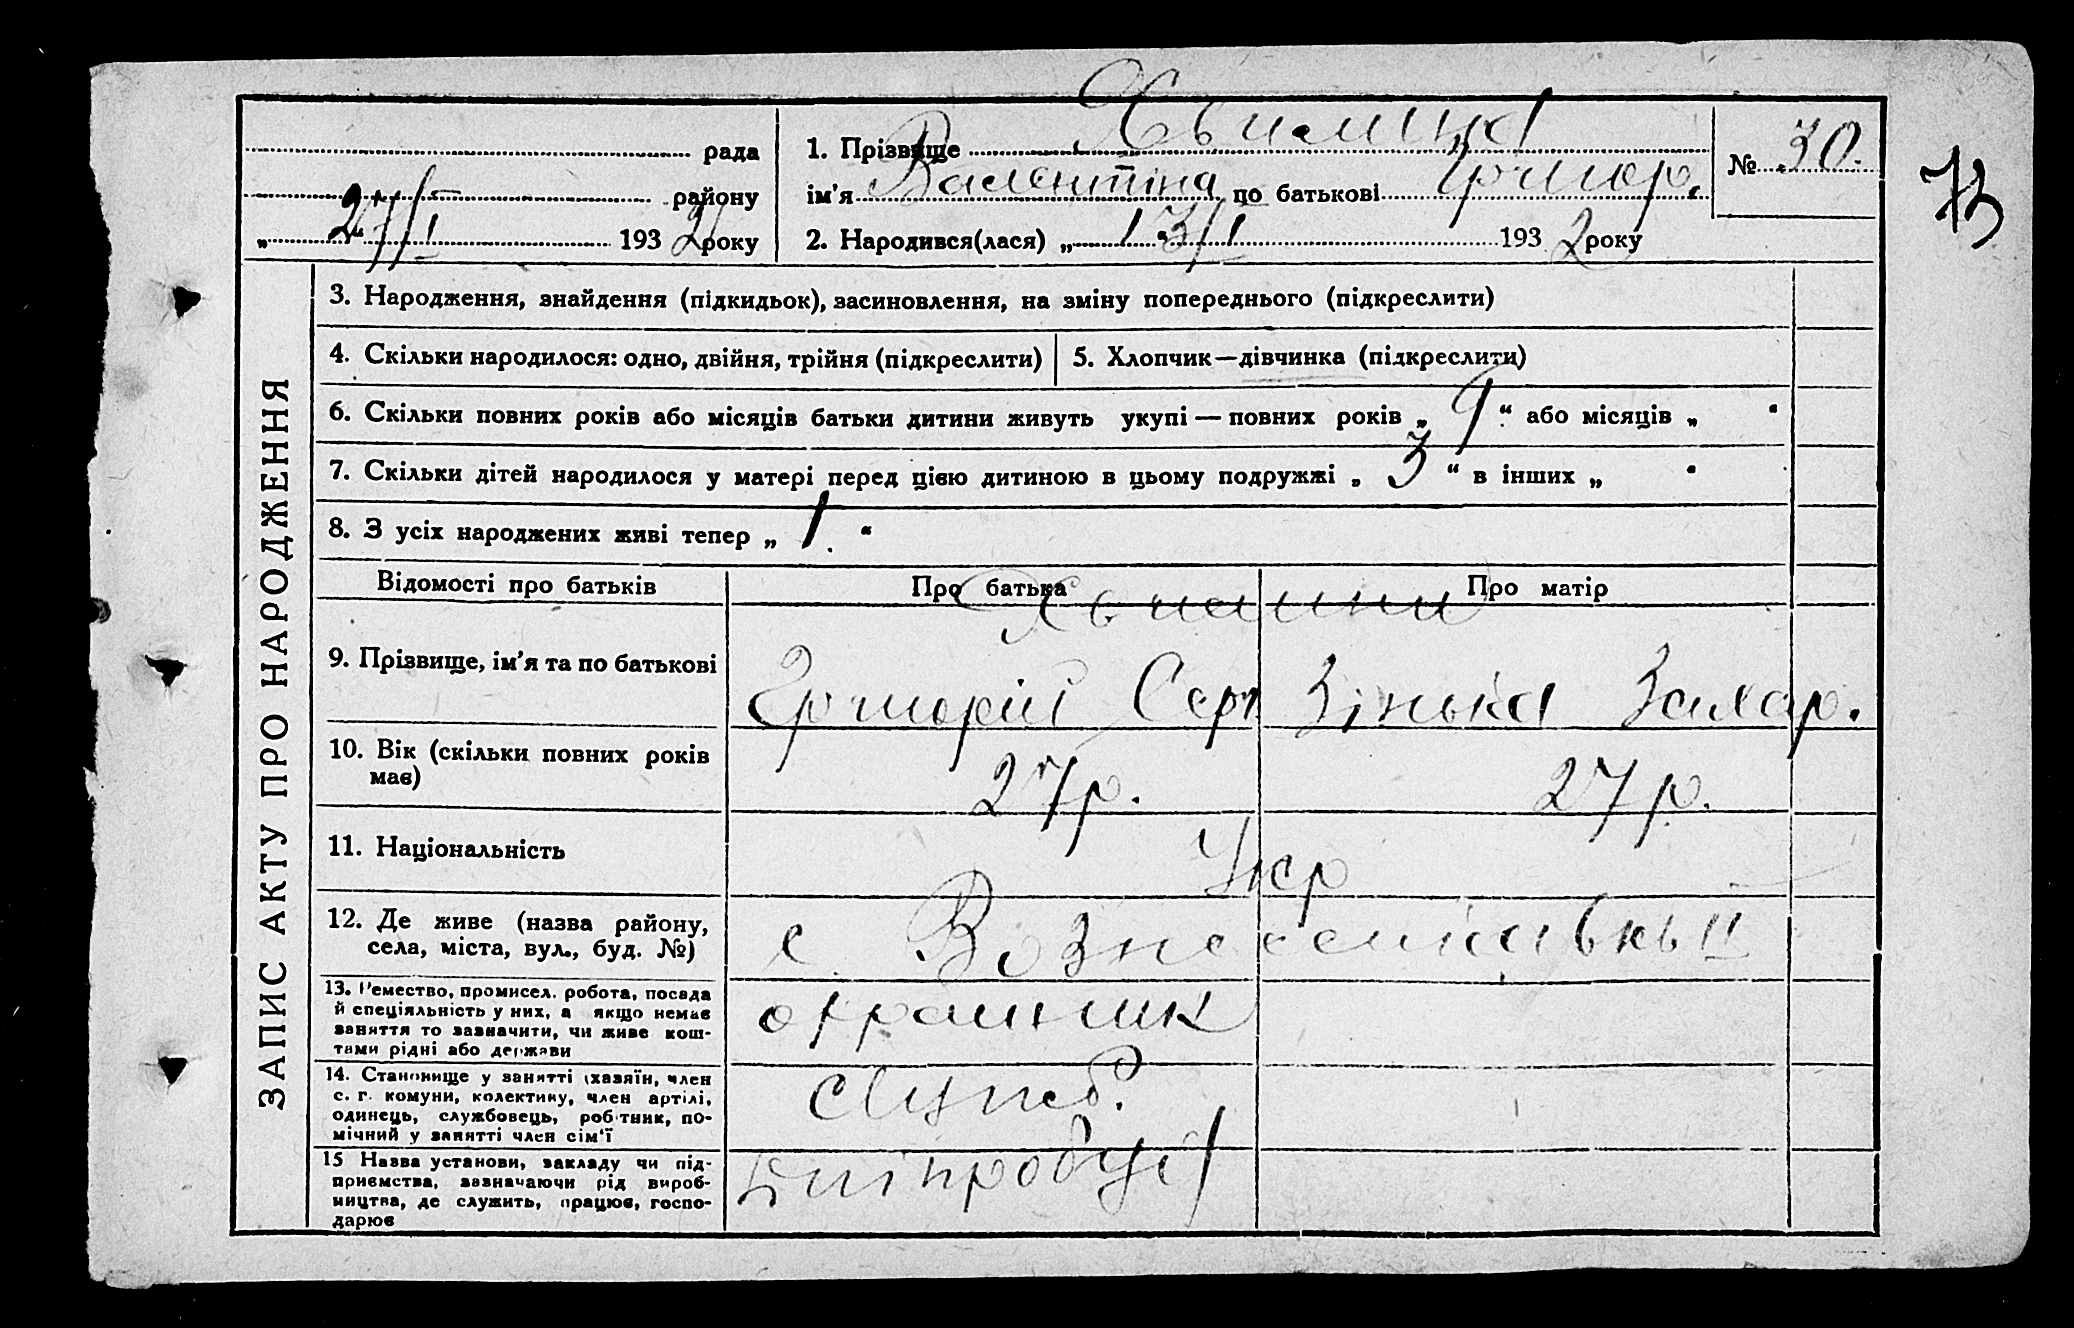 рада
району
„27/I“ 1932 року
1. Прізвище
ім'я Валентина по батькові Григор.
2. Народився(лася) „13/I“ 1932 року
№ 30.
73
ЗАПИС АКТУ ПРО НАРОДЖЕННЯ
3. Народження, знайдення (підкидьок), засиновлення, на зміну попереднього (підкреслити)
4. Скільки народилося: одно, двійня, трійня (підкреслити)
5. Хлопчик—дівчинка (підкреслити)
6. Скільки повних років або місяців батьки дитини живуть укупі — повних років „9“ або місяців „ “
7. Скільки дітей народилося у матері перед цією дитиною в цьому подружжі „3“ в інших „ “
8. З усіх народжених живі тепер „1.“
Відомості про батьків
Про батька
Про матір
9. Прізвище, ім'я та по батькові
Григорій Серг
Зінька Захар.
10. Вік (скільки повних років
має)
27 р.
27 р.
11. Національність
Укр
12. Де живе (назва району,
села, міста, вул., буд. №)
с. Вознесенськ II
13. Ремество, промисел, робота, посада
й спеціяльність у них, а якщо немає
заняття то зазначити, чи живе кош-
тами рідні або держави
охранник
14. Становище у занятті (хазяїн, член
с. г. комуни, колективу, член артілі,
одинець, службовець, робітник, по-
мічний у занятті член сім'ї
служб.
15 Назва установи, закладу чи під-
приємства, зазначаючи рід вироб-
ництва, де служить, працює, госпо-
дарює
Дніпробуд